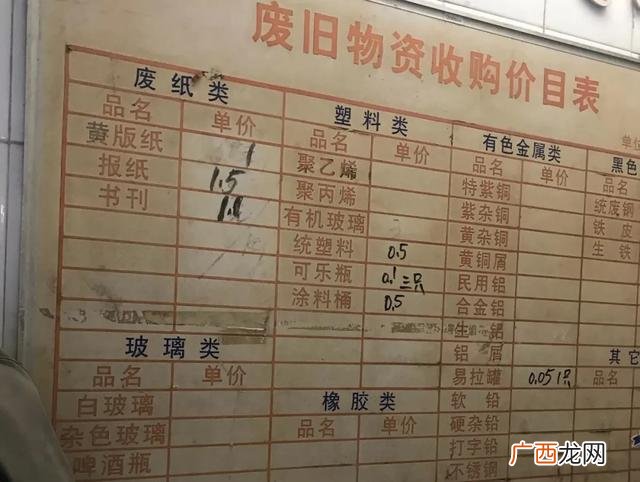 废旧物资收购价目表
废纸类
品名 单价
黄版纸 1
报纸 1.5
书刊 1.1
塑料类
品名 单价
聚乙烯
聚丙烯
有机玻璃
统塑料 0.5
可乐瓶 0.1三只
涂料桶 0.5
有色金属类
品名 单价
特紫铜
紫杂铜
黄杂铜
黄铜屑
民用铝
合金铝
生铝
铝屑
易拉罐 0.051只
软铅
硬杂铅
打字铅
不锈钢
单位
黑色
品名
统废钢
铁皮
生铁
玻璃类
品名 单价
白玻璃
杂色玻璃
啤酒瓶
橡胶类
品名 单价
其它
品名
广西龙网